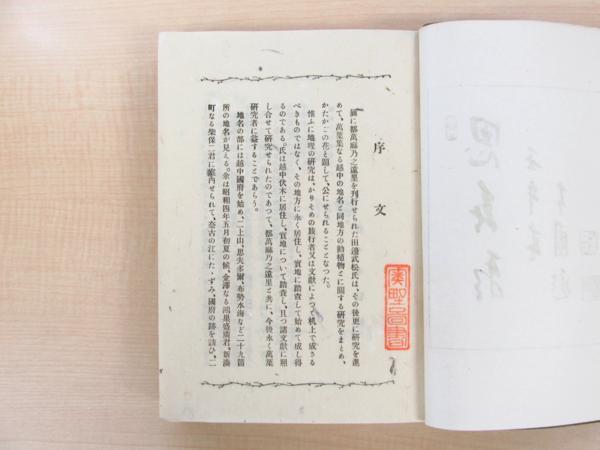 序文
曩に都萬麻乃之遠里を刊行せられた田邊武松氏は、その後更に研究を進
めて、萬葉集なる越中の地名と同地方の動植物とに關する研究をまとめ、
かたかごの花と題して、公にせられることとなつた。
惟ふに地理の研究は、かりそめの旅行者又は文献によつて机上で成さる
べきものではなく、その地方に永く居住し、實地に踏査して始めて成し得
るのである。氏は越中伏木に居住し、實地について踏査し、且つ諸文献に照
し合せて研究せられたのであつて、都萬麻乃之遠里と共に、今後永く萬葉
研究者に益することであらう。
地名の部には越中國府を始め、二上山、思夫多爾、布勢水海など二十九箇
所の地名が見える。余は昭和四年五月初夏の候、金澤なる鴻巣盛廣君、新湊
町なる柴保二君に案内せられて、奈古の江にたゝずみ、國府の跡を訪ひ、二